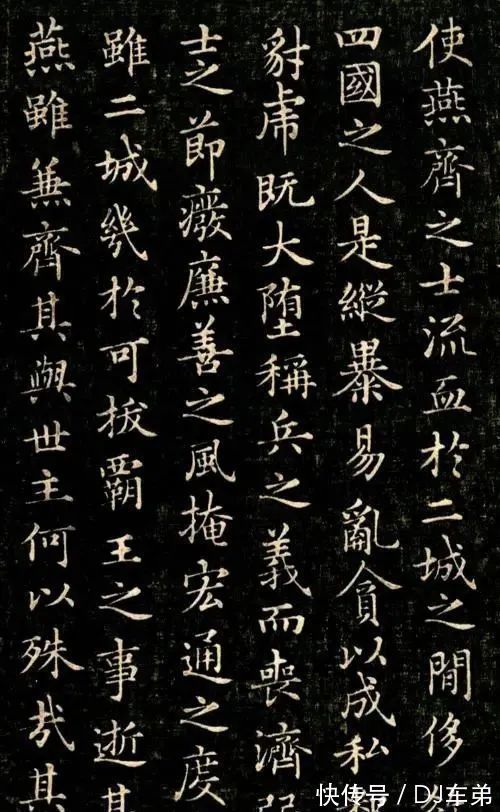 使燕齊之士流血於二城之間侈
四國之人是縱暴易亂貪以成私
豺虎既大墮稱兵之義而喪濟
士之節癈廉善之風掩宏通之度
雖二城幾於可拔霸王之事逝其
燕雖兼齊其與世主何以殊哉其
快传号 / DJ车弟